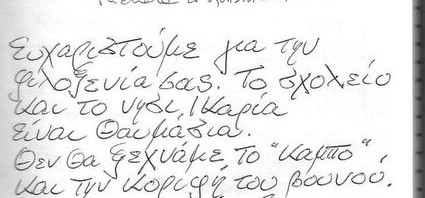 Ευχαριστούμε για την
φιλοξενία σας. Το σχολείο
και το νησί Ικαρία
είναι θαυμάσια.
Θεν θα ξεχνάμε το "Καμπο"
και την κοριφή του βουνού.